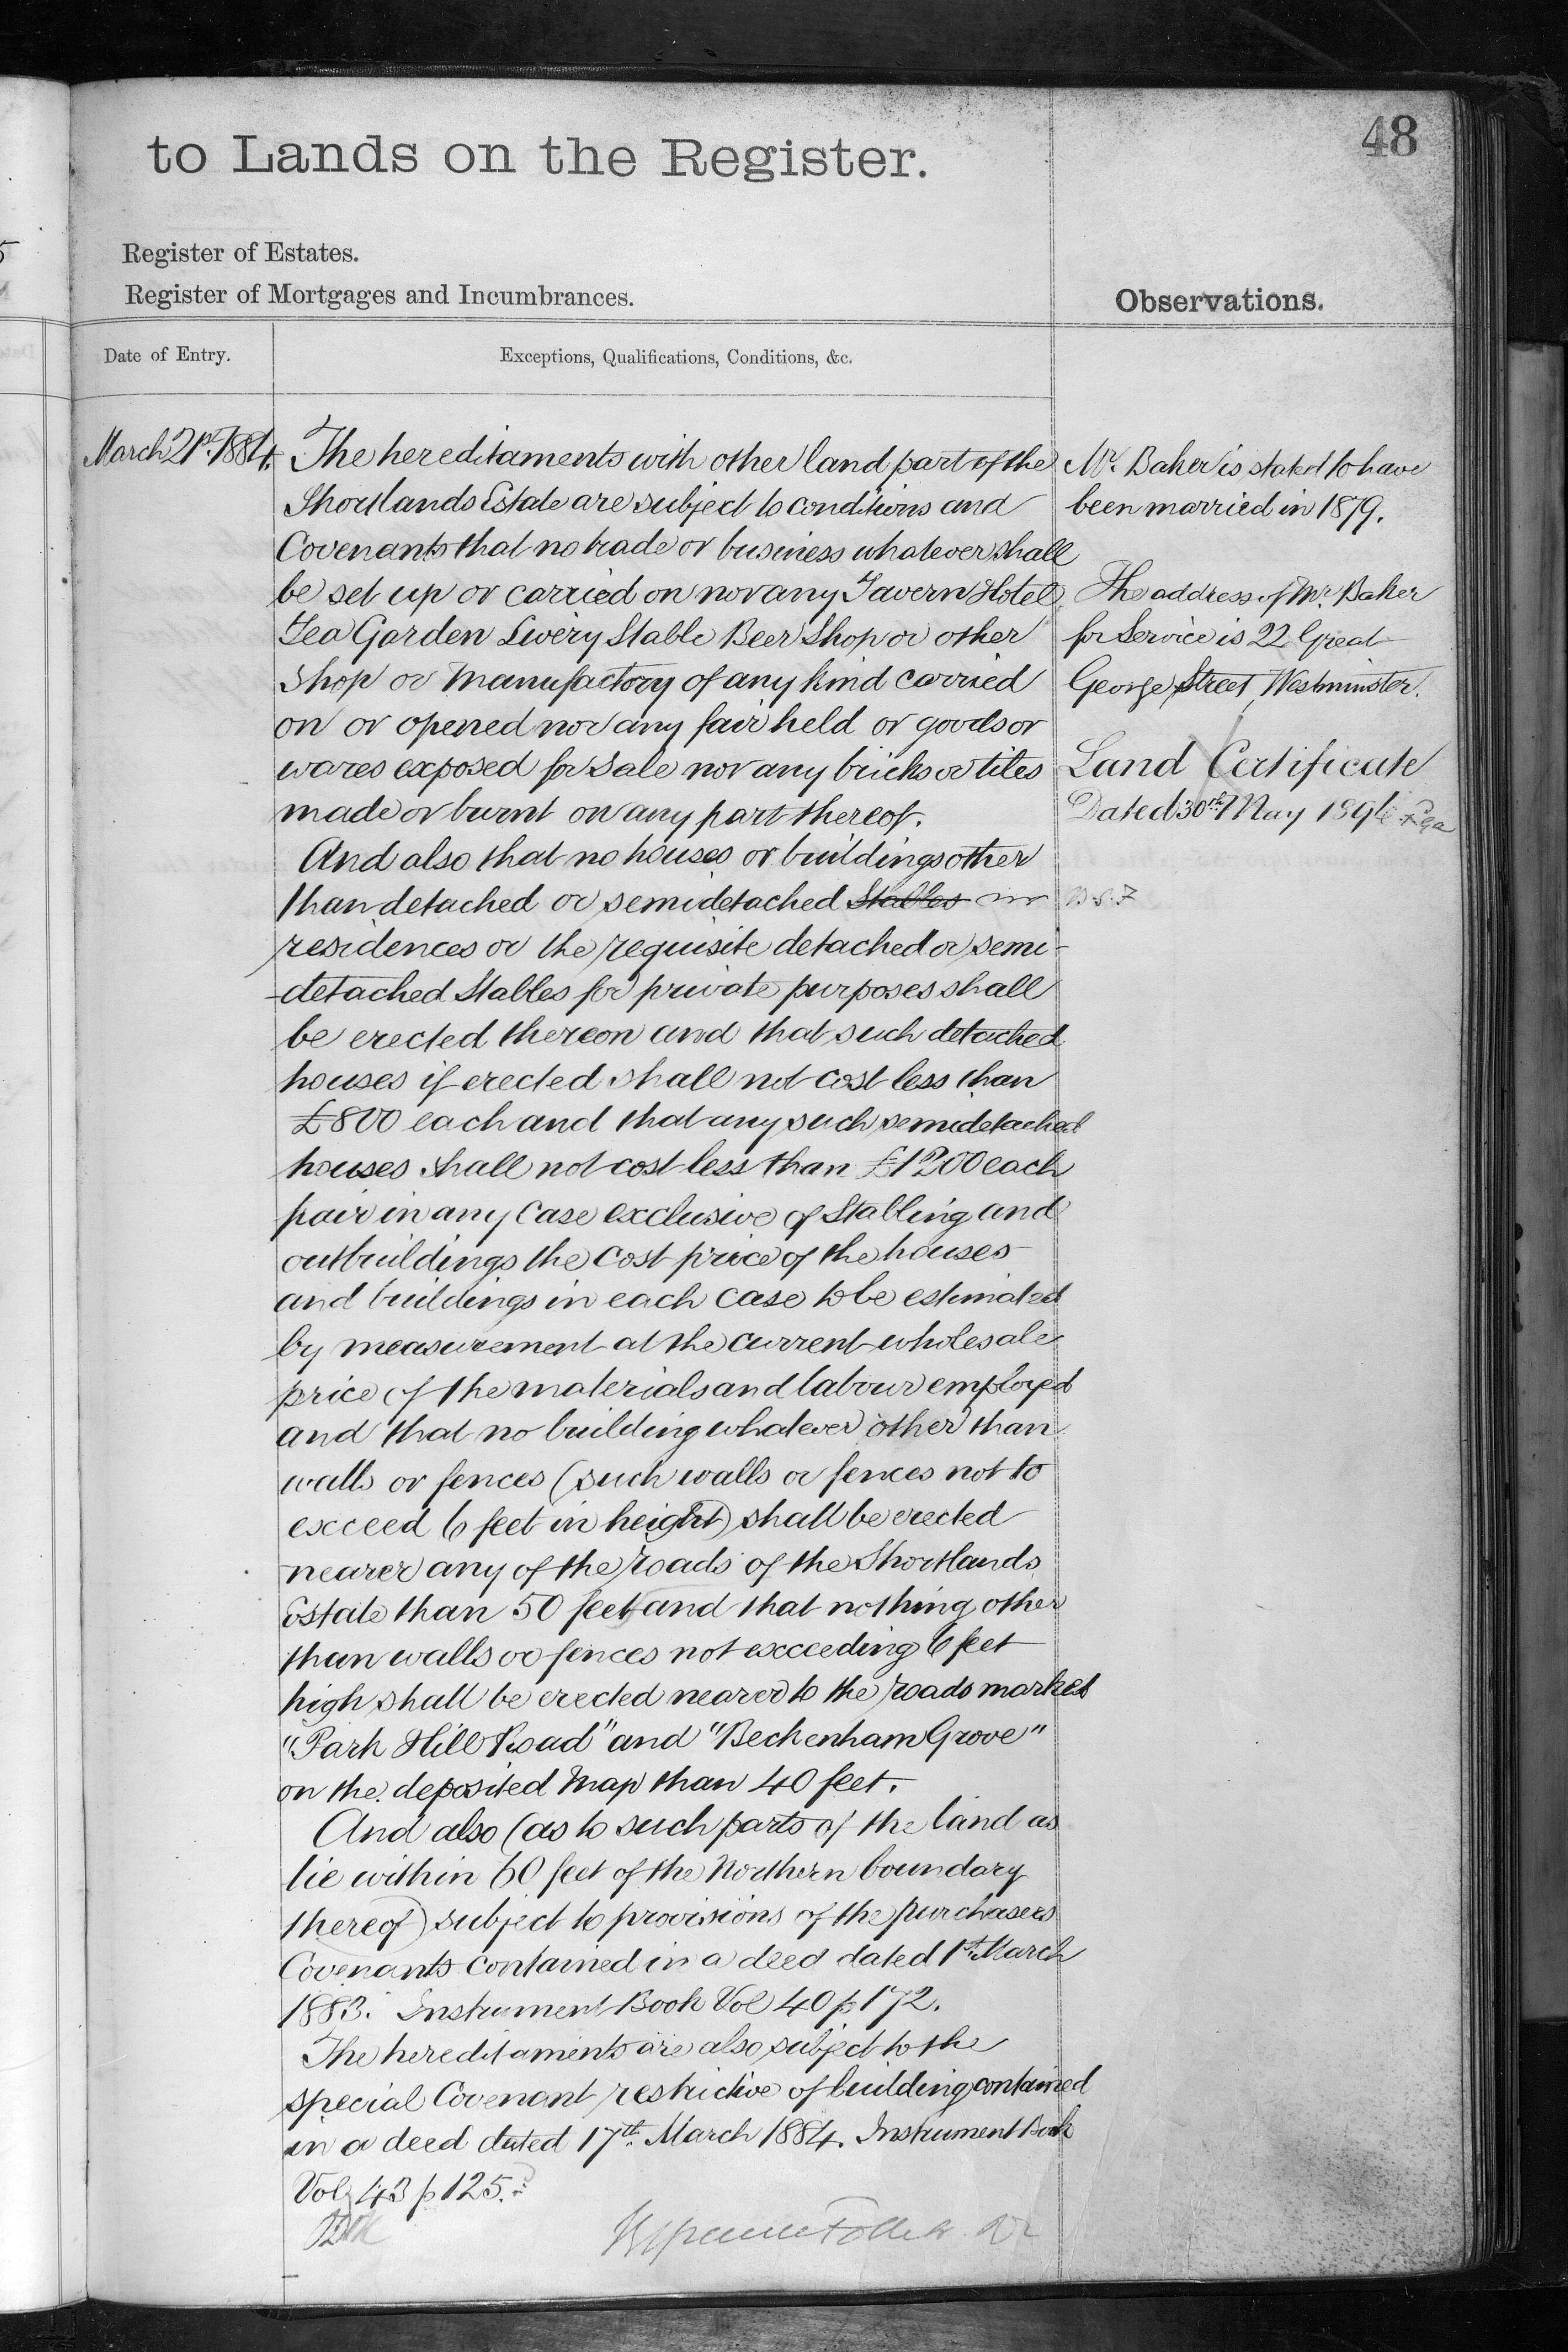 48
to Lands on the Register.
Register of Estates.
Register of Mortgages and Incumbrances.
Observations.
Date of Entry.
Exceptions, Qualifications, Conditions, &c.
March 21st 1884.
The hereditaments with other land part of the
Shortlands Estate are subject to conditions and
Covenants that no trade or business whatever shall
be set up or carried on nor any Tavern Hotel
Tea Garden Livery Stable Beer Shop or other
Shop or Manufactory of any kind carried
on or opened nor any fair held or goods or
wares exposed for sale nor any bricks or tiles
made or burnt on any part thereof.
And also that no houses or buildings other
than detached or semidetached Stables
residences or the requisite detached or semi-
-detached Stables for private purposes shall
be erected thereon and that such detached
houses if erected shall not cost less than
£800 each and that any such semidetached
houses shall not cost less than £1200 each
pair in any Case exclusive of Stabling and
outbuildings the Cost price of the houses
and buildings in each Case to be estimated
by measurement at the current wholesale
price of the materials and labour employed
and that no building whatever other than
walls or fences (such walls or fences not to
exceed 6 feet in height) shall be erected
nearer any of the roads of the Shortlands
Estate than 50 feet and that nothing other
than walls or fences not exceeding 6 feet
high shall be erected nearer to the roads marked
"Park Hill Road" and "Beckenham Grove"
on the deposited Map than 40 feet.
And also (as to such parts of the land as
lie within 60 feet of the Northern boundary
thereof) subject to provisions of the purchasers
Covenants contained in a deed dated 1st March
1883. Instrument Book Vol 40 p 172.
The hereditaments are also subject to the
special Covenant restrictive of building contained
in a deed dated 17th March 1884. Instrument Book
Vol 43 p 125.
Mr. Baker is stated to have
been married in 1879.
The address of Mr. Baker
for Service is 22 Great
George Street, Westminster.
Land Certificate
Dated 30th May 1896